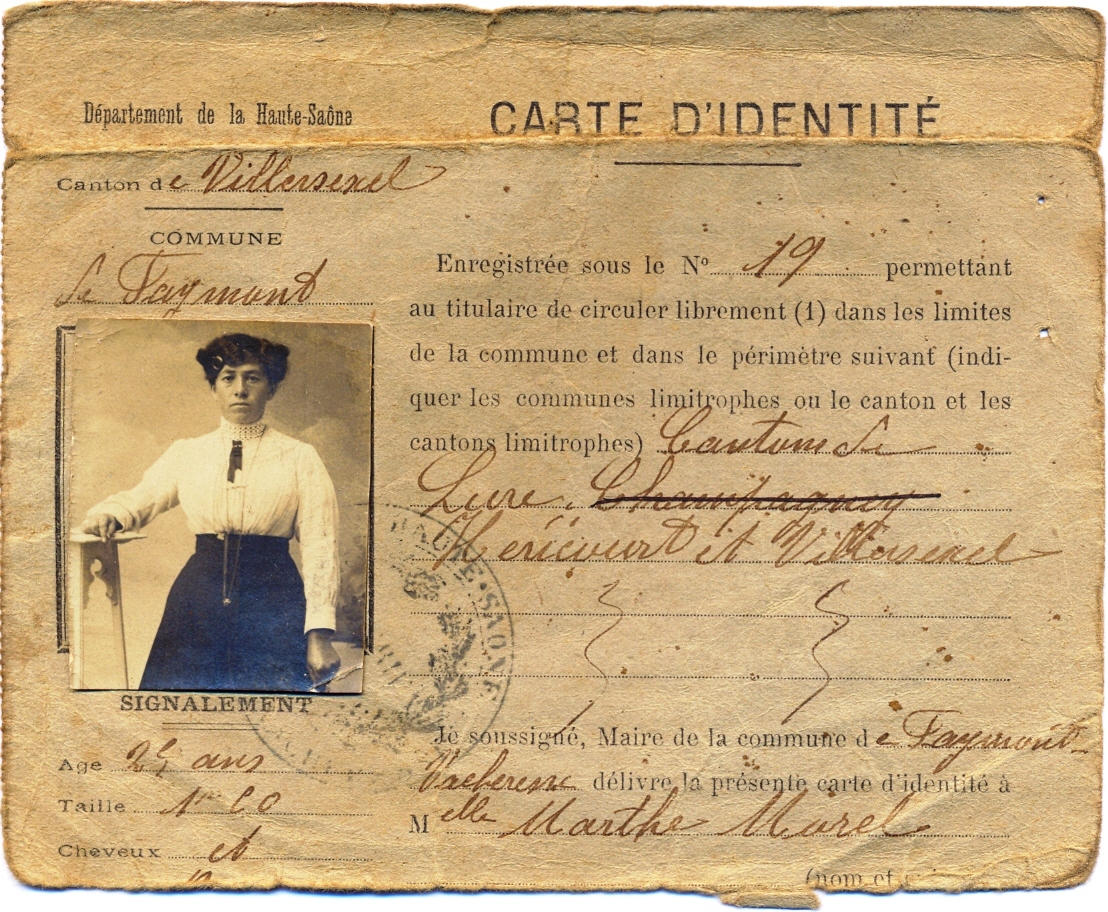 Département de la Haute-Saône
CARTE D'IDENTITÉ
Canton de Villersexel
COMMUNE
de Faymont
Enregistrée sous le Nº 19 permettant
au titulaire de circuler librement (1) dans les limites
de la commune et dans le périmètre suivant (indi-
quer les communes limitrophes ou le canton et les
cantons limitrophes) Cantons de
Lure, Champagney
Héricourt et Villersexel
HAUTE-SAONE
SIGNALEMENT
Age 25 ans
Taille 1m 60
Cheveux
Je soussigné, Maire de la commune de Faymont-
délivre la présente carte d'identité à
Melle Marthe Morel
(nom et